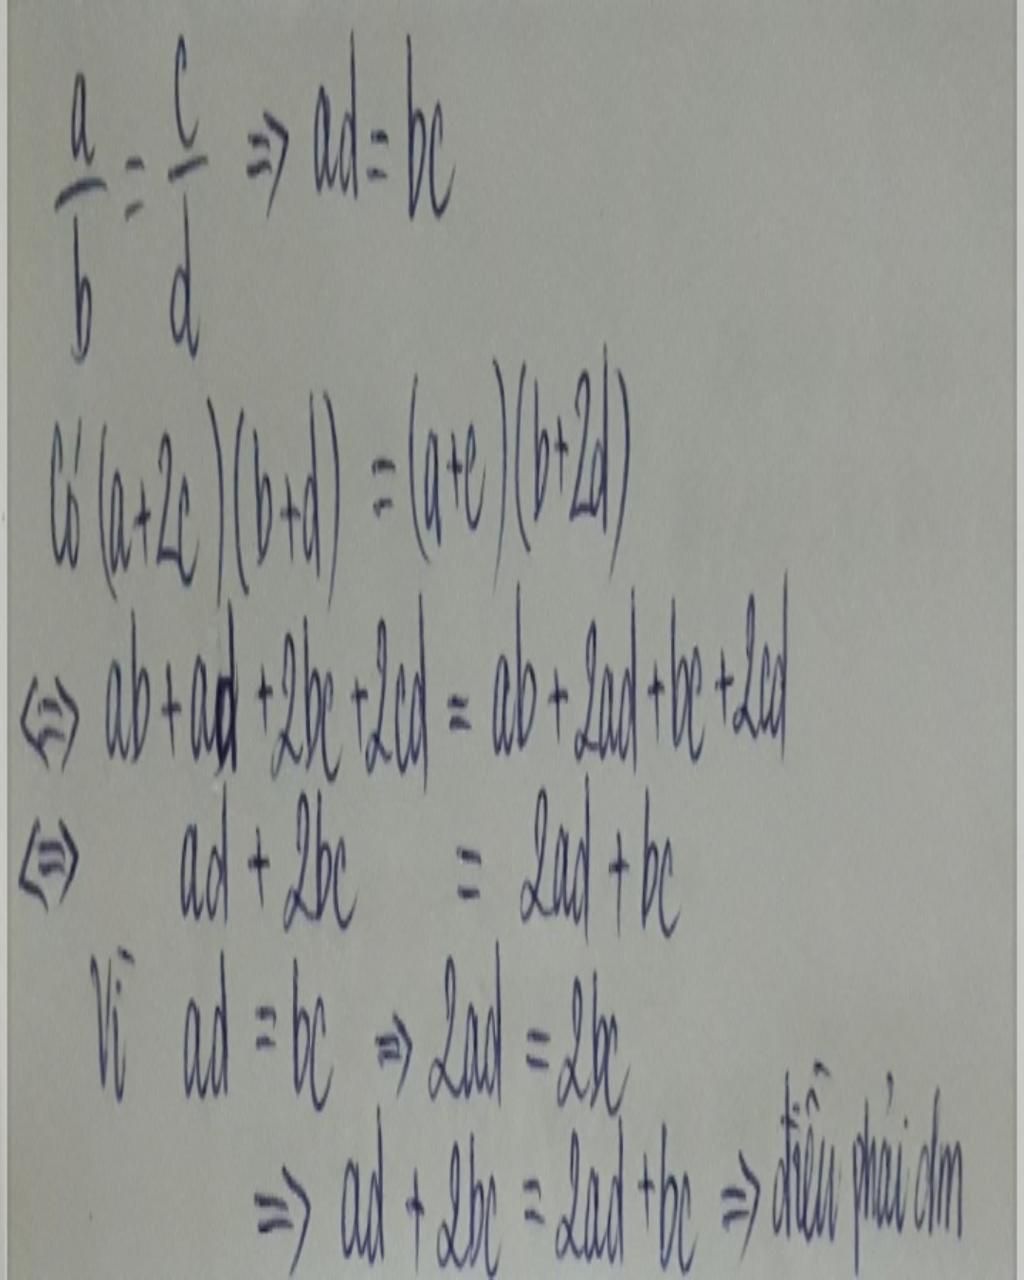 a/b = c/d ⇒ ad = bc
Có (a+2c)(b+d) = (a+c)(b+2d)
⇔ ab + ad + 2bc + 2cd = ab + 2ad + bc + 2cd
⇔ ad + 2bc = 2ad + bc
Vì ad = bc ⇒ 2ad = 2bc
⇒ ad + 2bc = 2ad + bc ⇒ điều phải dm